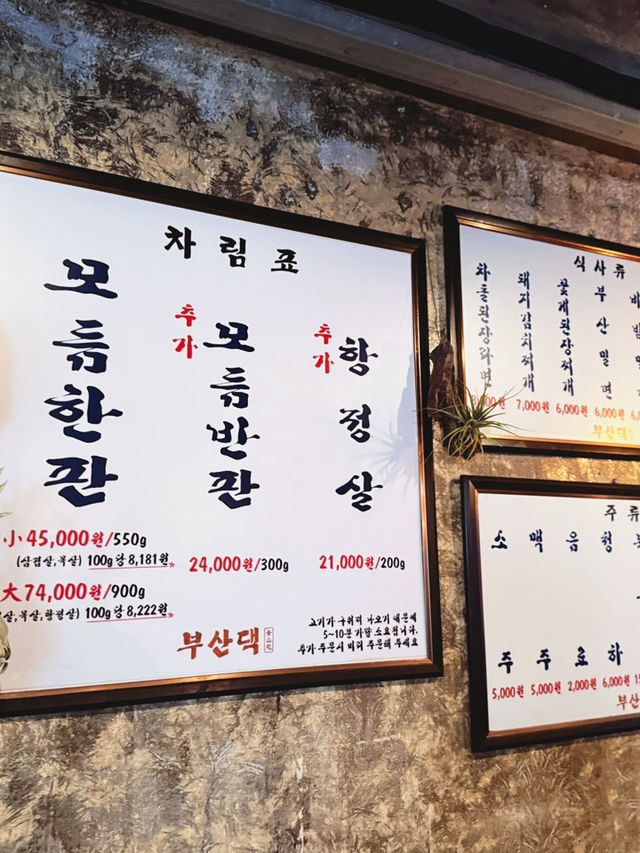 차림표
모듬한판
小 45,000원/550g
(삼겹살,목살) 100g당 8,181원
大 74,000원/900g
살,목살,항정살) 100g당 8,222원
추가 모듬반판
24,000원/300g
추가 항정살
21,000원/200g
고기가 구워져 나오기 때문에
5~10분 가량 소요됩니다.
추가 주문시 미리 주문해 주세요
부산댁
식사류
차돌된장라면
돼지김치찌개
7,000원
꽃게된장찌개
6,000원
부산밀면
6,000원
부산댁
주류
소주
5,000원
맥주
5,000원
음료
2,000원
청하
6,000원
부산